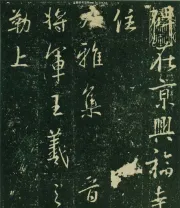 碑在京興福寺
住
大雅集 晉
將軍王羲之
勒上